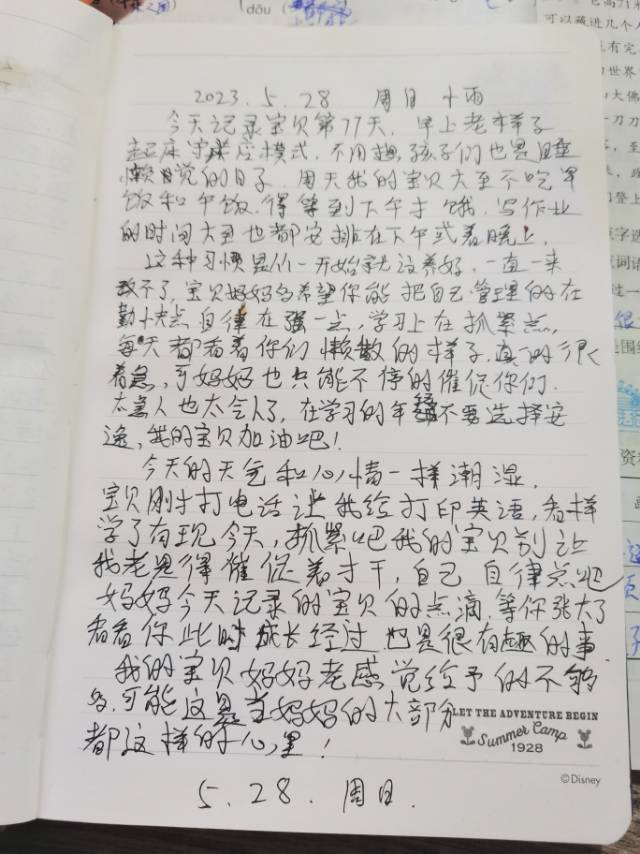 dǒu
2023.5.28 周日 中雨
今天记录宝贝第77天, 早上老样子
起床 模式, 不用想孩子们也是睡
懒 觉的日子. 周天我的宝贝大至不吃早
饭和午饭. 得等到下午才饿, 写作业
的时间大至也都安排在下午或着晚上.
这种习惯最价一开始就没养好, 一直一来
改不了, 宝贝妈妈多希望你能把自己管理的在
勤快点 自律在强一点, 学习上在抓紧点,
每天都看着你们懒散的样子. 真的很
着急, 可妈妈也只能不停的催促你们.
太 人也太 了, 在学习的年 不要选择安
逸, 我的宝贝加油吧!
今天的天气和心情一样潮湿.
宝贝刚才打电话让我给打印英语, 看样
学了有 今天, 抓紧吧我的宝贝别让
我老是得催促着才干, 自己自律点吧
妈妈今天记录的宝贝的点滴, 等你张大了
看看你此时成长经过也是很有趣的事.
我的宝贝妈妈老感觉给予的不够
多, 可能这是当妈妈的大部分
都这样的心里!
LET THE ADVENTURE BEGIN
Summer Camp
1928
©Disney
5.28. 周日.